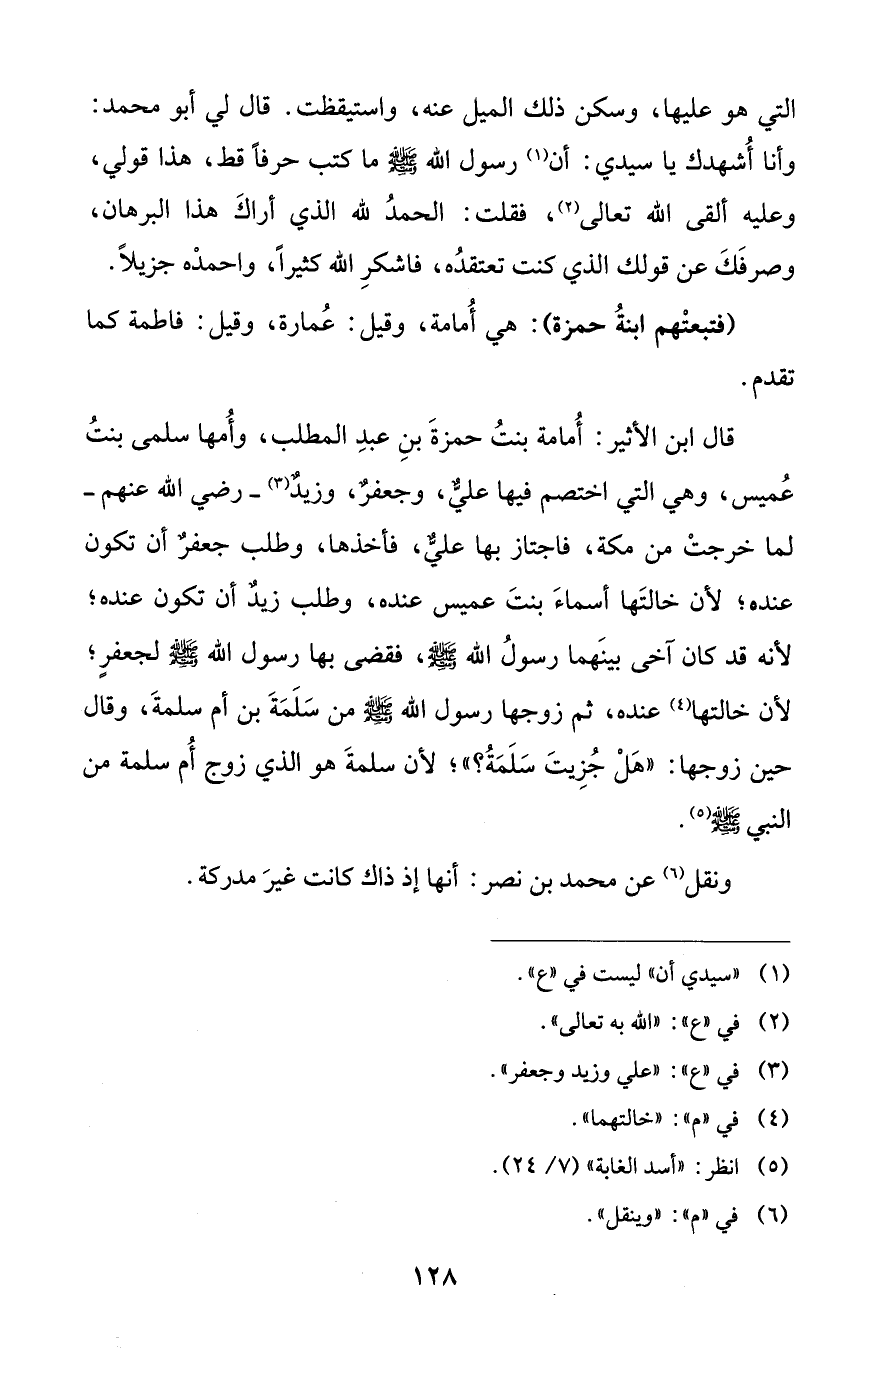 التي هو عليها، وسكن ذلك الميل عنه، واستيقظت. قال لي أبو محمد:
وأنا أُشهدك يا سيدي: أن(١) رسول الله ﷺ ما كتب حرفاً قط، هذا قولي،
وعليه ألقى الله تعالى(٢)، فقلت: الحمدُ لله الذي أراكَ هذا البرهان،
وصرفَكَ عن قولك الذي كنت تعتقدُه، فاشكرِ الله كثيراً، واحمدْه جزيلاً.
(فتبعتْهم ابنةُ حمزة): هي أُمامة، وقيل: عُمارة، وقيل: فاطمة كما
تقدم.
قال ابن الأثير: أُمامة بنتُ حمزةَ بنِ عبدِ المطلب، وأُمها سلمى بنتُ
عُميس، وهي التي اختصم فيها عليٌّ، وجعفرٌ، وزيدٌ(٣) ـ رضي الله عنهم ـ
لما خرجتْ من مكة، فاجتاز بها عليٌّ، فأخذها، وطلب جعفرٌ أن تكون
عنده؛ لأن خالتَها أسماءَ بنتَ عميس عنده، وطلب زيدٌ أن تكون عنده؛
لأنه قد كان آخى بينَهما رسولُ الله ﷺ، فقضى بها رسول الله ﷺ لجعفرٍ؛
لأن خالتها(٤) عنده، ثم زوجها رسول الله ﷺ من سَلَمَةَ بن أم سلمةَ، وقال
حين زوجها: «هَلْ جُزِيتَ سَلَمَةُ؟»؛ لأن سلمةَ هو الذي زوج أُم سلمة من
النبي ﷺ(٥).
ونقل(٦) عن محمد بن نصر: أنها إذ ذاك كانت غيرَ مدركة.
(١) «سيدي أن» ليست في «ع».
(٢) في «ع»: «الله به تعالى».
(٣) في «ع»: «علي وزيد وجعفر».
(٤) في «م»: «خالتهما».
(٥) انظر: «أسد الغابة» (٧/ ٢٤).
(٦) في «م»: «وينقل».
١٢٨